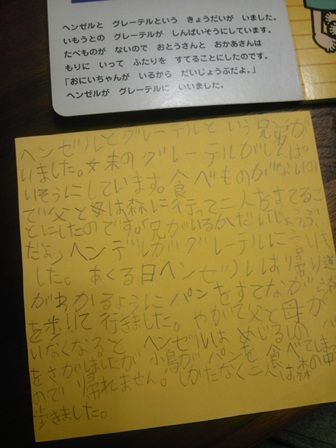 ヘンゼルと グレーテルという きょうだいが いました。
いもうとの グレーテルが しんぱいそうにしています。
たべものが ないので おとうさんと おかあさんは
もりに いって ふたりを すてることにしたのです。
「おにいちゃんが いるから だいじょうぶだよ。」
ヘンゼルが グレーテルに いいました。
ヘンゼルとグレーテルという兄弟が
いました。妹のグレーテルがしんぱ
いそうにしています。食べものがないの
で父と母は森に行って二人をすてるこ
とにしたのです。「兄がいるからだいじょうぶ
だよ」ヘンデルがグレーテルにいいま
した。 よくる日ヘンゼルは帰り道
がわかるようにパンをすてながら
を歩いて行きました。やがて父と母が
いなくなると ヘンゼルはめじるしの
をさがしましたが小鳥がパンを食べてしまっ
ので帰れません。しかたなく二人は森の中
歩きました。